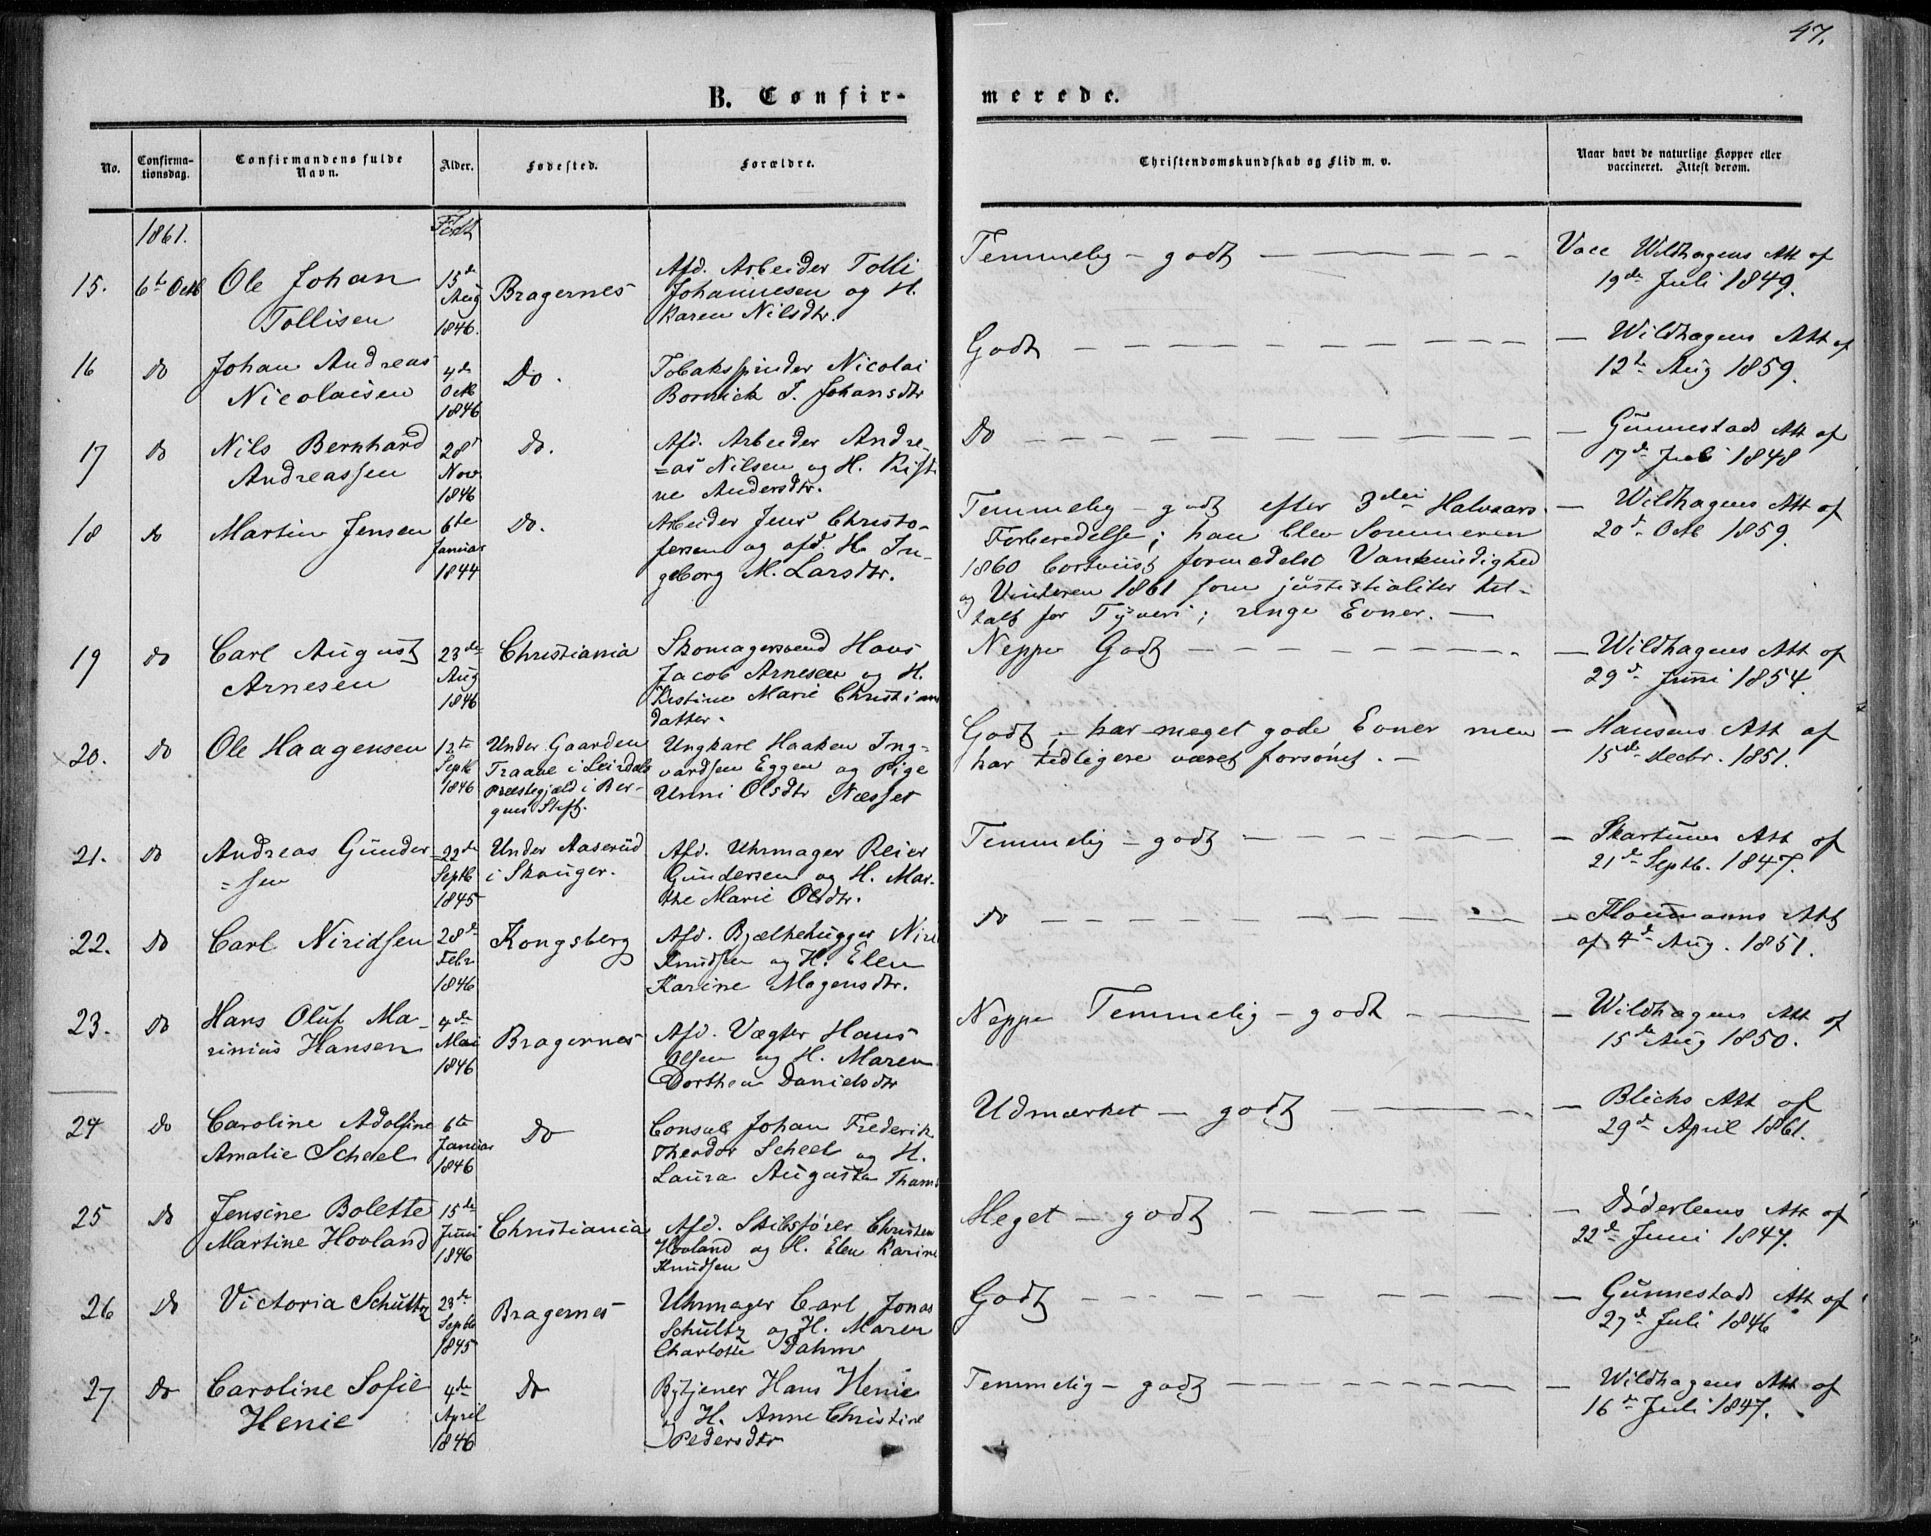 47.
B. Confir-
merede.
No.
Confirma-
tionsdag.
Confirmandens fulde
Navn.
Alder.
Fødested.
Forældre.
Christendomskundskab og Flid m. v.
Naar havt de naturlige Kopper eller
vaccineret. Attest derom.
1861.
Født
15.
6te Octb
Ole Johan
Tollisen
15de
Aug
1846.
Bragernes
Afd. Arbeider Tolli
Johannesen og H.
Karen Nilsdtr.
Temmelig - godt
Vacc Wildhagens Att af
19de Juli 1849.
16
Do
Johan Andreas
Nicolaisen
4de
Octb
1846
Do.
Tobakspinder Nicolai
Bornich J. Johansdtr
Godt
— Wildhagens Att af
12te Aug 1859.
17
Do
Nils Bernhard
Andreassen
28de
Nov.
1846
Do.
Afd. Arbeider Andre-
=as Nilsen og H. Kristi
ne Andersdtr.
Do
— Gunnestads Att af
17de Juli 1848
18
Do
Martin Jensen
6te
Januar
1844
Do.
Arbeider Jens Christo-
fersen og afd. H. In-
geborg M. Larsdtr.
Temmelig - godt efter 3die Halvaars
Forberedelse; han blev Sommeren
1860 bortviist formedelst Vankundighed
og Vinteren 1861 som justistialiter til-
talt for Tyveri; ringe Evner. —
— Wildhagens Att af
20de Octb 1859.
19
Do
Carl August
Arnesen
23de
Aug
1846
Christiania
Skomagersvend Hans
Jacob Arnesen og H.
Kistine Marie Christians
datter.
Neppe Godt
— Wildhagens Att af
29de Juni 1854.
20.
Do
Ole Haagensen
12te
Septb
1846
Under Gaarden
Traave i Leirdals
Præstegjæld i Ber-
gens Stift.
Ungkarl Haaken Ing-
vardsen Eggen og Pige
Unni Olsdtr Næsset
Godt, - har meget gode Evner men
har tidligere været forsømt. —
— Hansens Att af
15de Decbr. 1851.
21.
Do
Andreas Gunder
=sen
22de
Septb
1845
Under Aaserud
i Skouger.
Afd. Uhrmager Reier
Gundersen og H. Mar-
the Marie Olsdtr.
Temmelig - godt
— Skartums Att af
21de Septb. 1847.
22.
Do
Carl Niridsen
28de
Febr
1846
Kongsberg
Afd. Bjælkehugger Niri
Knudsen og H. Elen
Karine Mogensdtr.
Do
Att
af 4de Aug. 1851.
23.
Do
Hans Oluf Ma-
rinius Hansen
4de
Mai
1846
Bragernes
Afd. Vægter Hans
Olsen og H. Maren
Dorthea Danielsdtr
Neppe Temmelig - godt
— Wildhagens Att af
15de Aug 1850.
24
Do
Caroline Adolfine
Amalie Scheel
6te
Januar
1846
Do
Consul Johan Frederik
Theodor Scheel og H.
Laura Augusta Thams
Udmærket - godt
— Blichs Att af
29de April 1861.
25
Do
Jensine Bolette
Martine Hovland
15de
Juni
1846
Christiania
Afd. Skibsfører Christen
Hovland og H. Elen Karine
Knudsen
Meget - godt
— Døderleins Att af
22de Juni 1847.
26
Do
Victoria Schultz
23de
Septb
1845
Bragernes
Uhrmager Carl Jonas
Schultz og H. Maren
Charlotte Dahm
Godt
— Gunnestads Att af
27de Juli 1846
27
Do
Caroline Sofie
Henie
4de
April
1846
Do
Bytjener Hans Henie
og H. Anne Christine
Pedersdtr
Temmelig - godt
— Wildhagens Att af
16de Juli 1847.